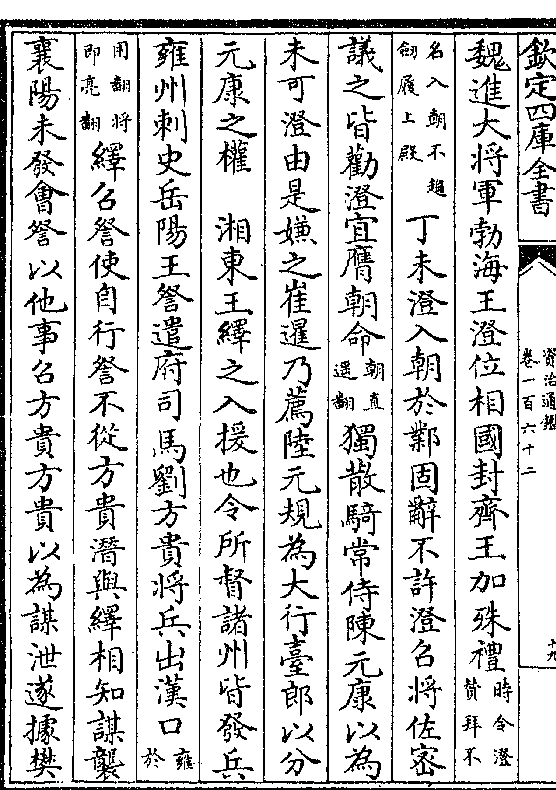 欽定四庫全書
資治通鑑
卷一百六十二
十九
魏進大將軍勃海王澄位相國封齊王加殊禮時令澄
贊拜不
名入朝不趨
劒履上殿丁未澄入朝於鄴固辭不許澄召將佐密
議之皆勸澄宜膺朝命朝直
遥翻獨散騎常侍陳元康以為
未可澄由是嫌之崔暹乃薦陸元規為大行臺郎以分
元康之權　湘東王繹之入援也令所督諸州皆發兵
雍州刺史岳陽王詧遣府司馬劉方貴將兵出漢口雍
於
用翻將
即亮翻繹召詧使自行詧不從方貴潛與繹相知謀襲
襄陽未發會詧以他事召方貴方貴以為謀泄遂據樊